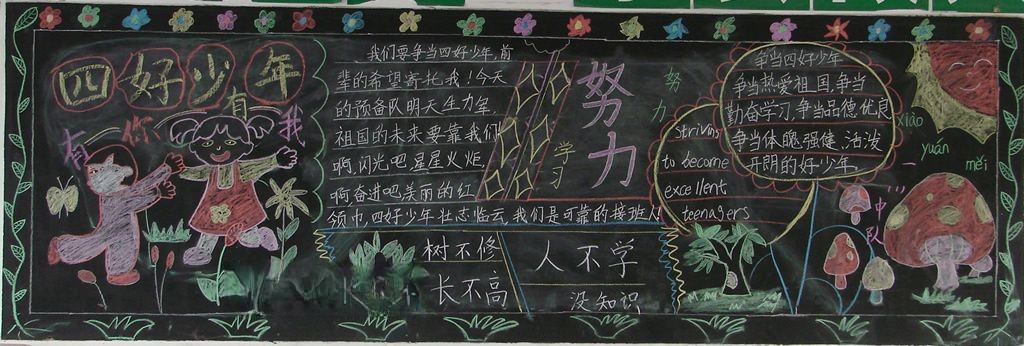 四好少年
有你有我
我们要争当四好少年,前
辈的希望寄托我!今天
的预备队明天生力军
祖国的未来要靠我们
啊,闪光吧星星火炬
啊奋进吧美丽的红
领巾,四好少年壮志临云,我们是可靠的接班人
努力
学习
努力
striving
to become
excellent
teenagers
争当四好少年
争当热爱祖国,争当
勤奋学习,争当品德优良
争当体魄强健、活泼
开朗的好少年。
xiào
yuán
měi
一中队
树不修
长不高
人不学
没知识